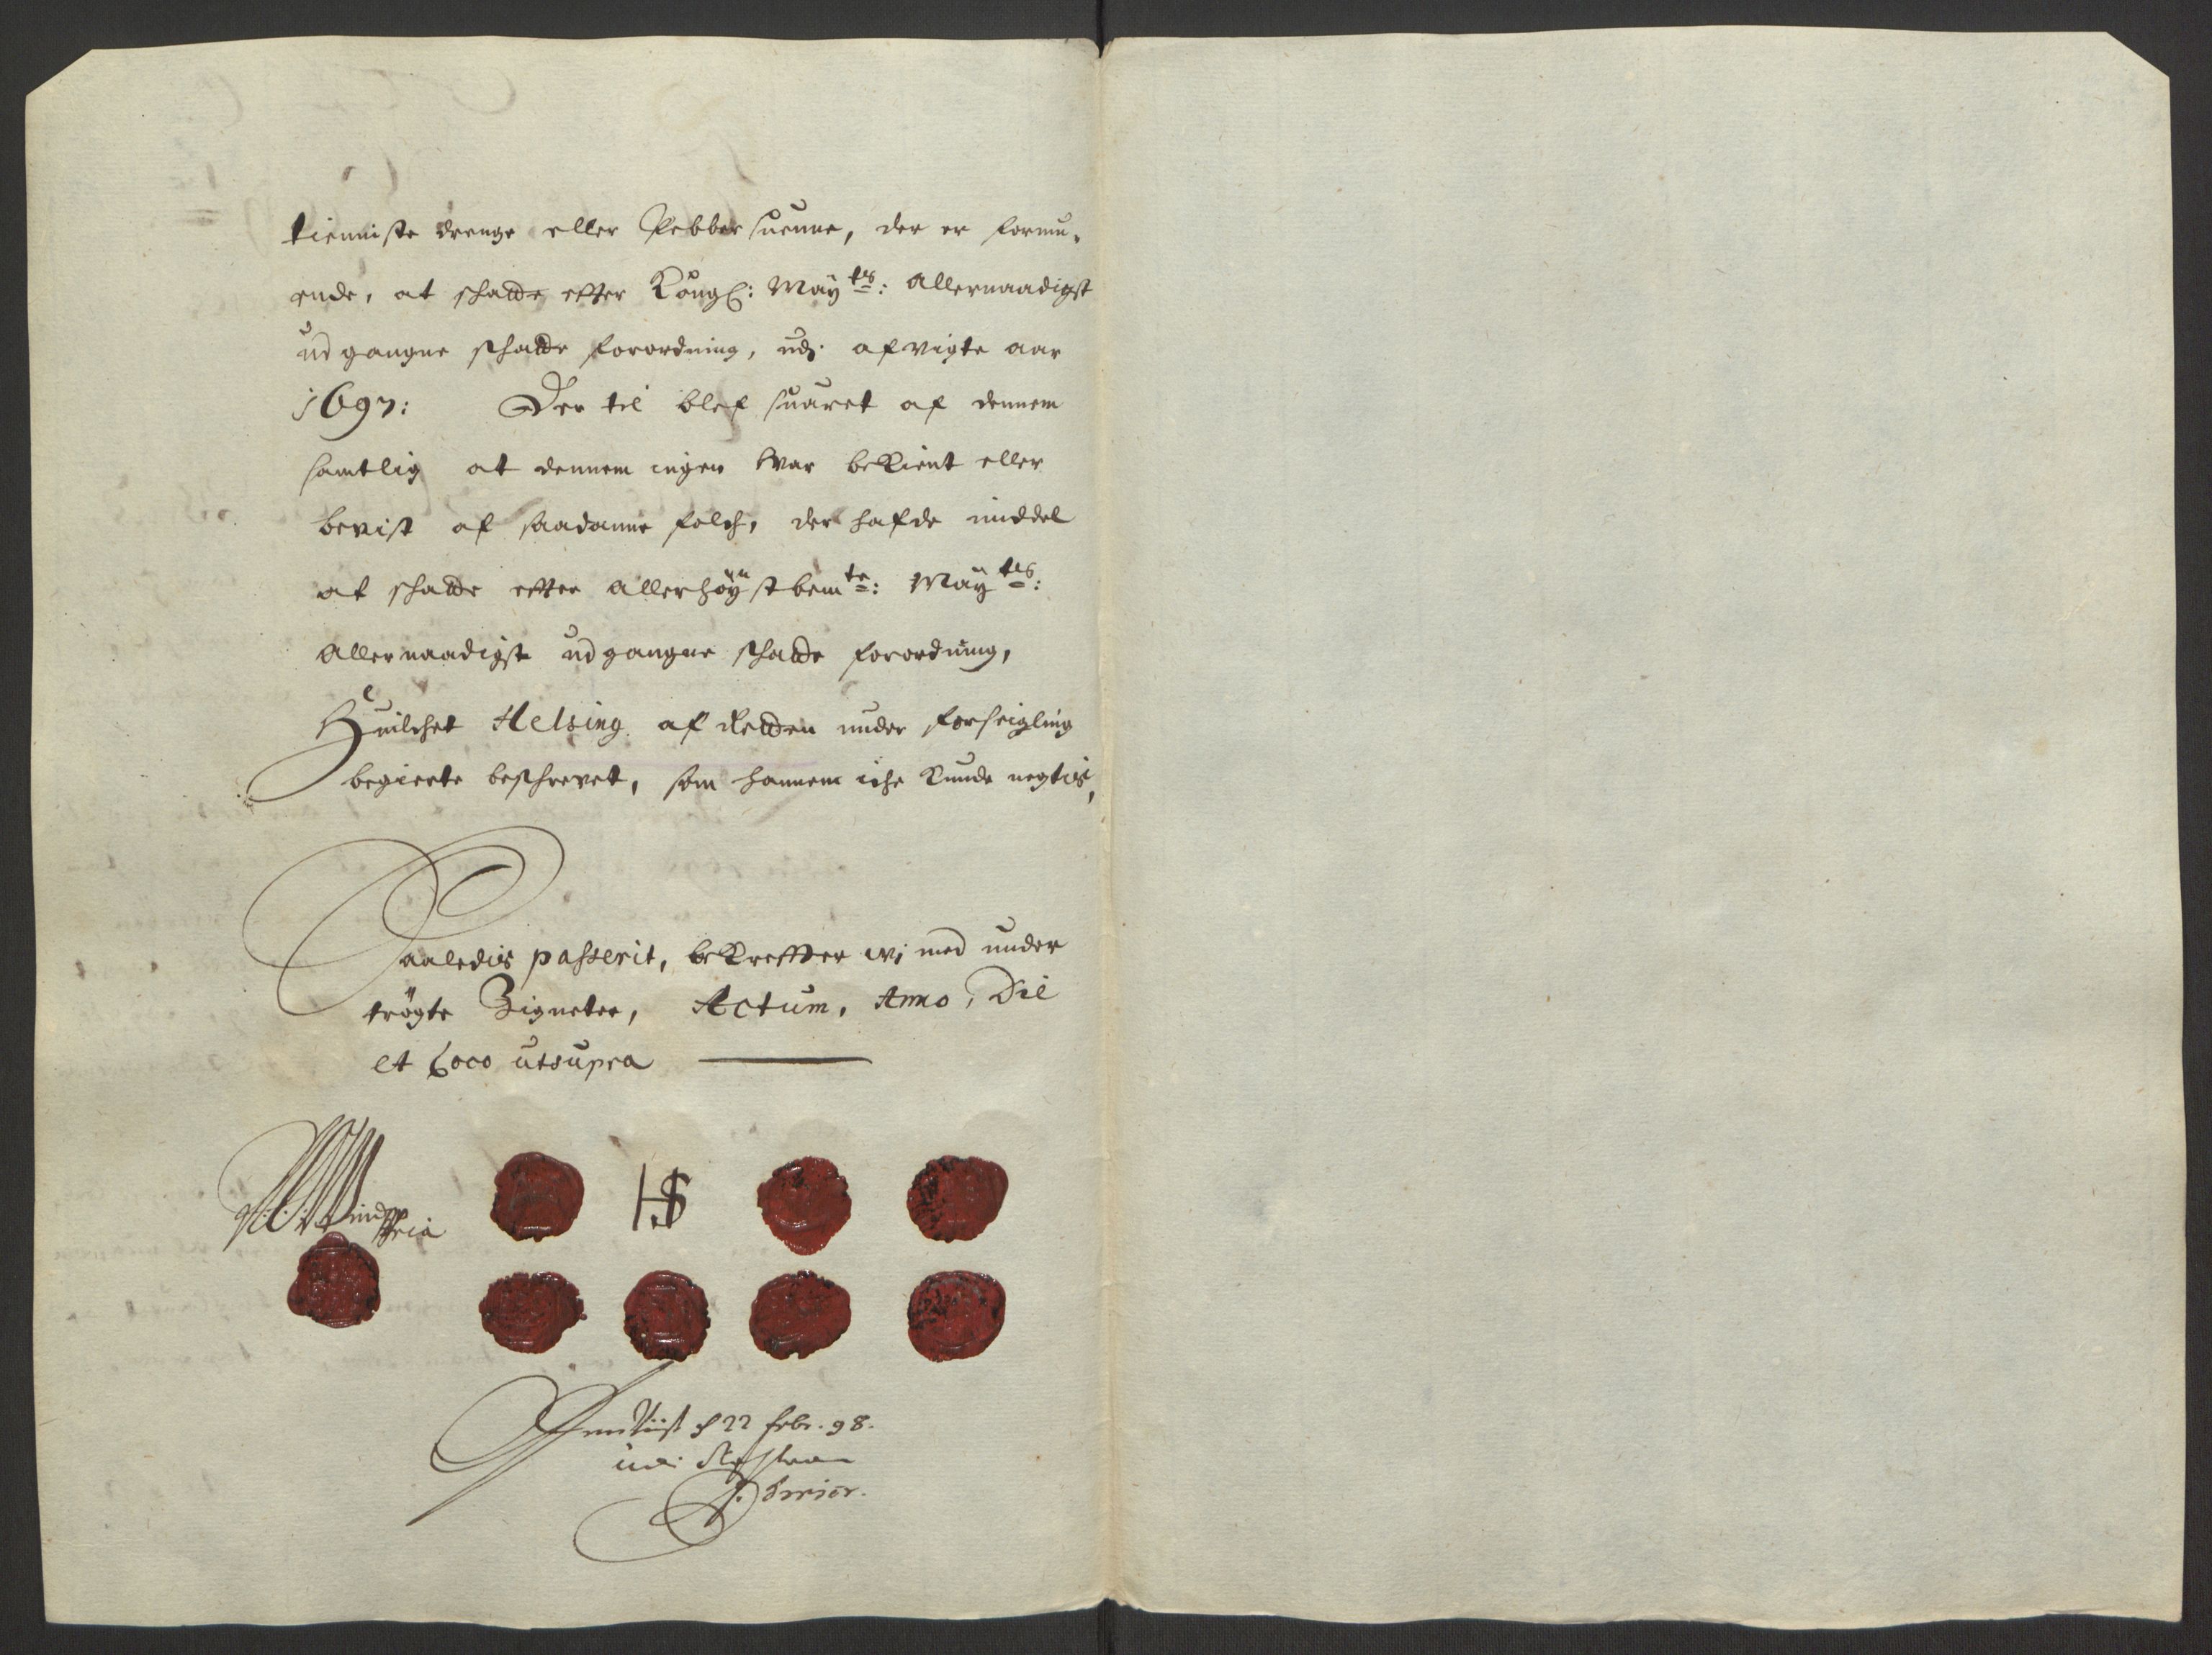 tienniste drenge eller Pebbersuenne, der er formu¬
ende, at schatte efter Kongl: Maÿ<sup>ts</sup>: allernaadigst
udgangne schatte forordning, udj afvigte aar
1697: Der til blef suaret af dennem
samtlig at dennem ingen war bekient eller
bevist af saadanne folch, der hafde middel
at schatte efter allerhöÿstbem<sup>te</sup>: Maÿ<sup>ts</sup>:
allernaadigste udgangne schatte forordning,
Huilchet Helsing af Retten under forseigling
begierte beschrevet, som hannem iche kunde negtis,
Saaledis passerit, bekreffter wi med under
trögte Zigneter, Actum, Anno, Die
et Loco utsupra
HS
d 22 Febr. 98.
udi